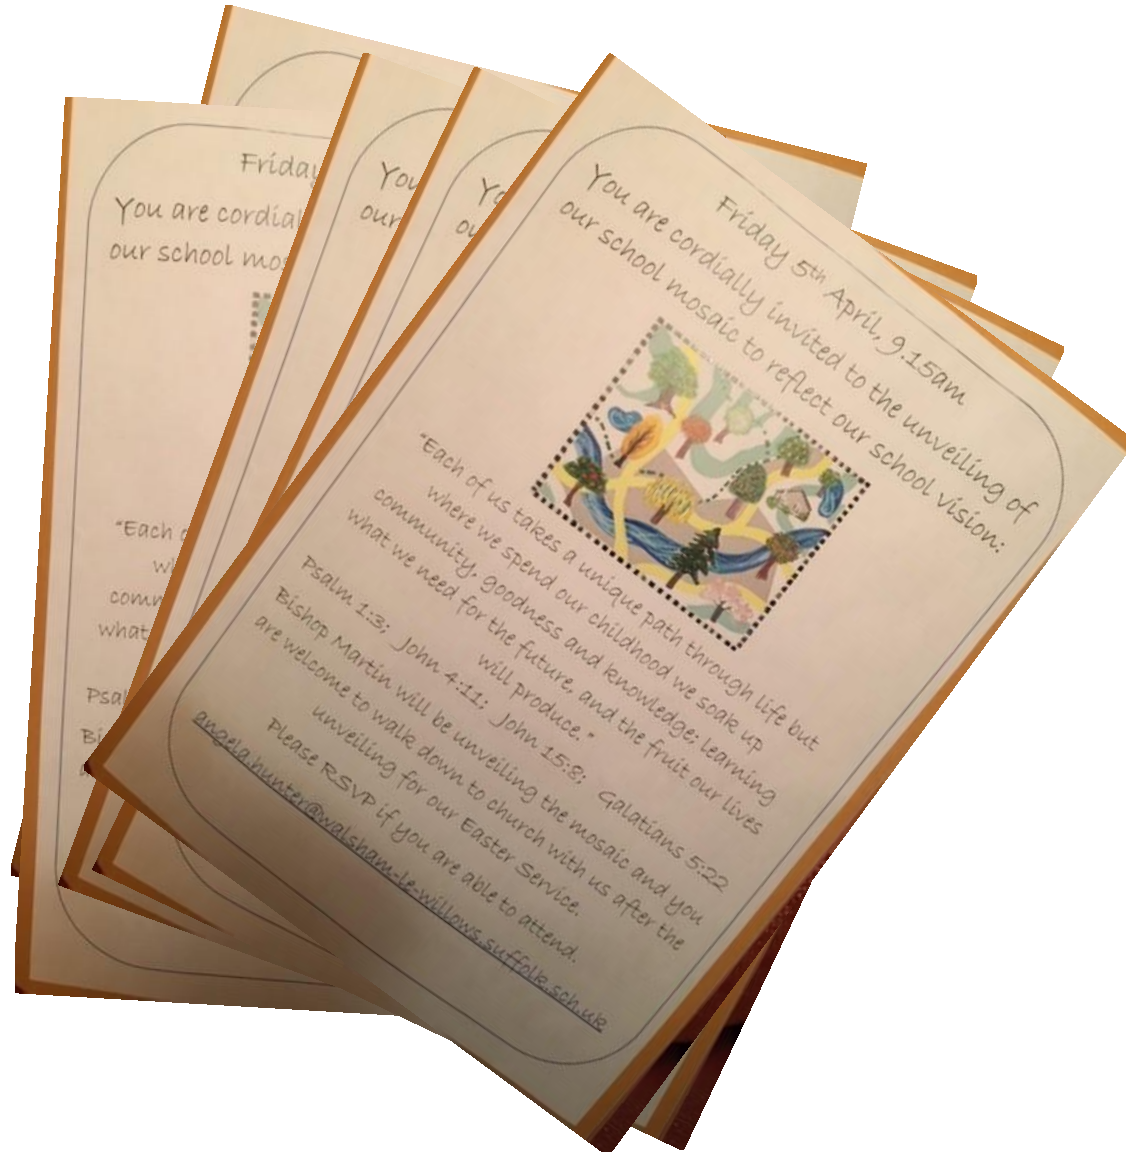 Friday 5th April, 9.15am
You are cordially invited to the unveiling of
our school mosaic to reflect our school vision:
"Each of us takes a unique path through life but
where we spend our childhood we soak up
community, goodness and knowledge; learning
what we need for the future, and the fruit our lives
will produce."
Psalm 1:3; John 4:11; John 15:8; Galatians 5:22
Bishop Martin will be unveiling the mosaic and you
are welcome to walk down to church with us after the
unveiling for our Easter Service.
Please RSVP if you are able to attend.
angela.hunter@walsham-le-willows.suffolk.sch.uk
Friday
You are cordial
our school mos
"Each
wh
comm
what
Psal
Bi
You
our
Yo
ou